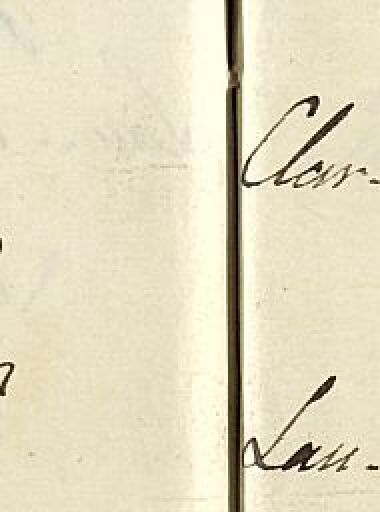 Clar-
Lau-